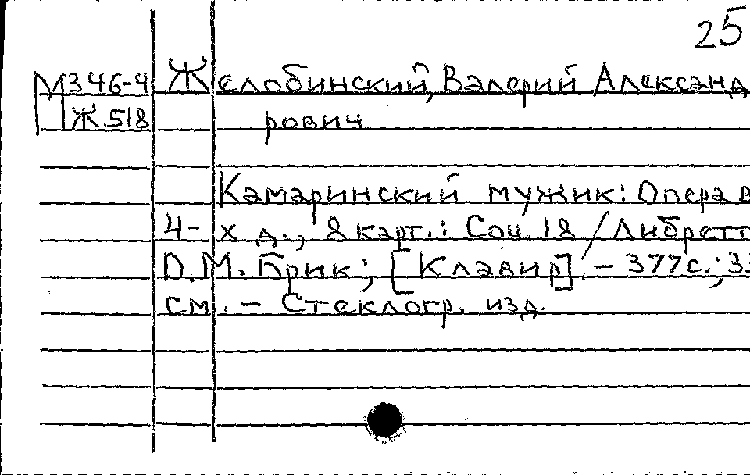 25
М346-4 Желобинский, Валерий Александ
Ж518 рович
Камаринский мужик: Опера в
4-х д., 8 карт.: Соч. 18 / Либретт
О.М. Брик; [Клавир]. - 377с.; 33
см. - Стеклогр. изд.